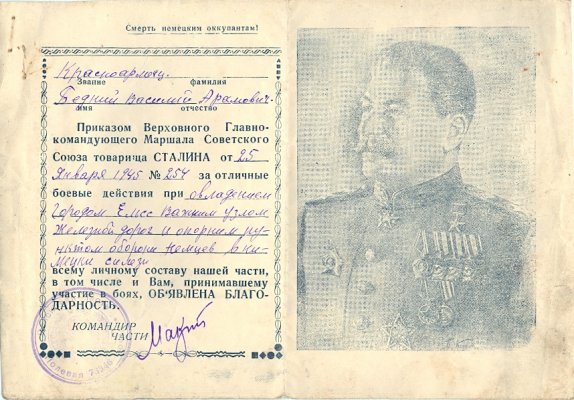 Смерть немецким оккупантам!
Красноармеец
Звание фамилия
Бедний Василий Арамович
имя отчество
Приказом Верховного Главно-
командующего Маршала Советского
Союза товарища СТАЛИНА от 25
Января 1945 № 254 за отличные
боевые действия при овладением
городом Емсс важним узлом
железной дорог и опорним пу-
нктом обороны немцев
всему личному составу нашей части,
в том числе и Вам, принимавшему
участие в боях, ОБ'ЯВЛЕНА БЛАГО-
ДАРНОСТЬ.
КОМАНДИР
ЧАСТИ
Полевая